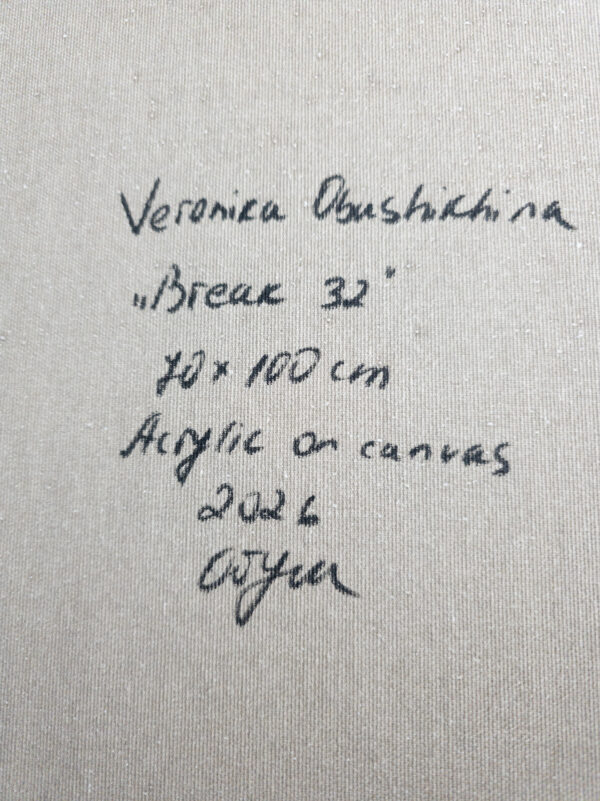 Veronika Obushikhina
„Break 32"
70 x 100 cm
Acrylic on canvas
2026
Обуш